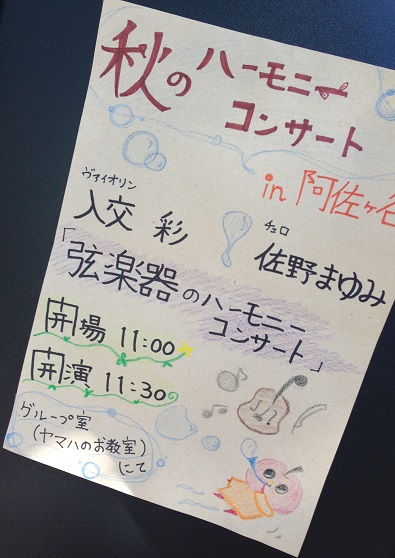 秋のハーモニー
コンサート
in 阿佐ヶ谷
ヴァイオリン
入交 彩
チェロ
佐野まゆみ
「弦楽器のハーモニー
コンサート」
開場 11:00
開演 11:30
グループ室
(ヤマハのお教室)
にて